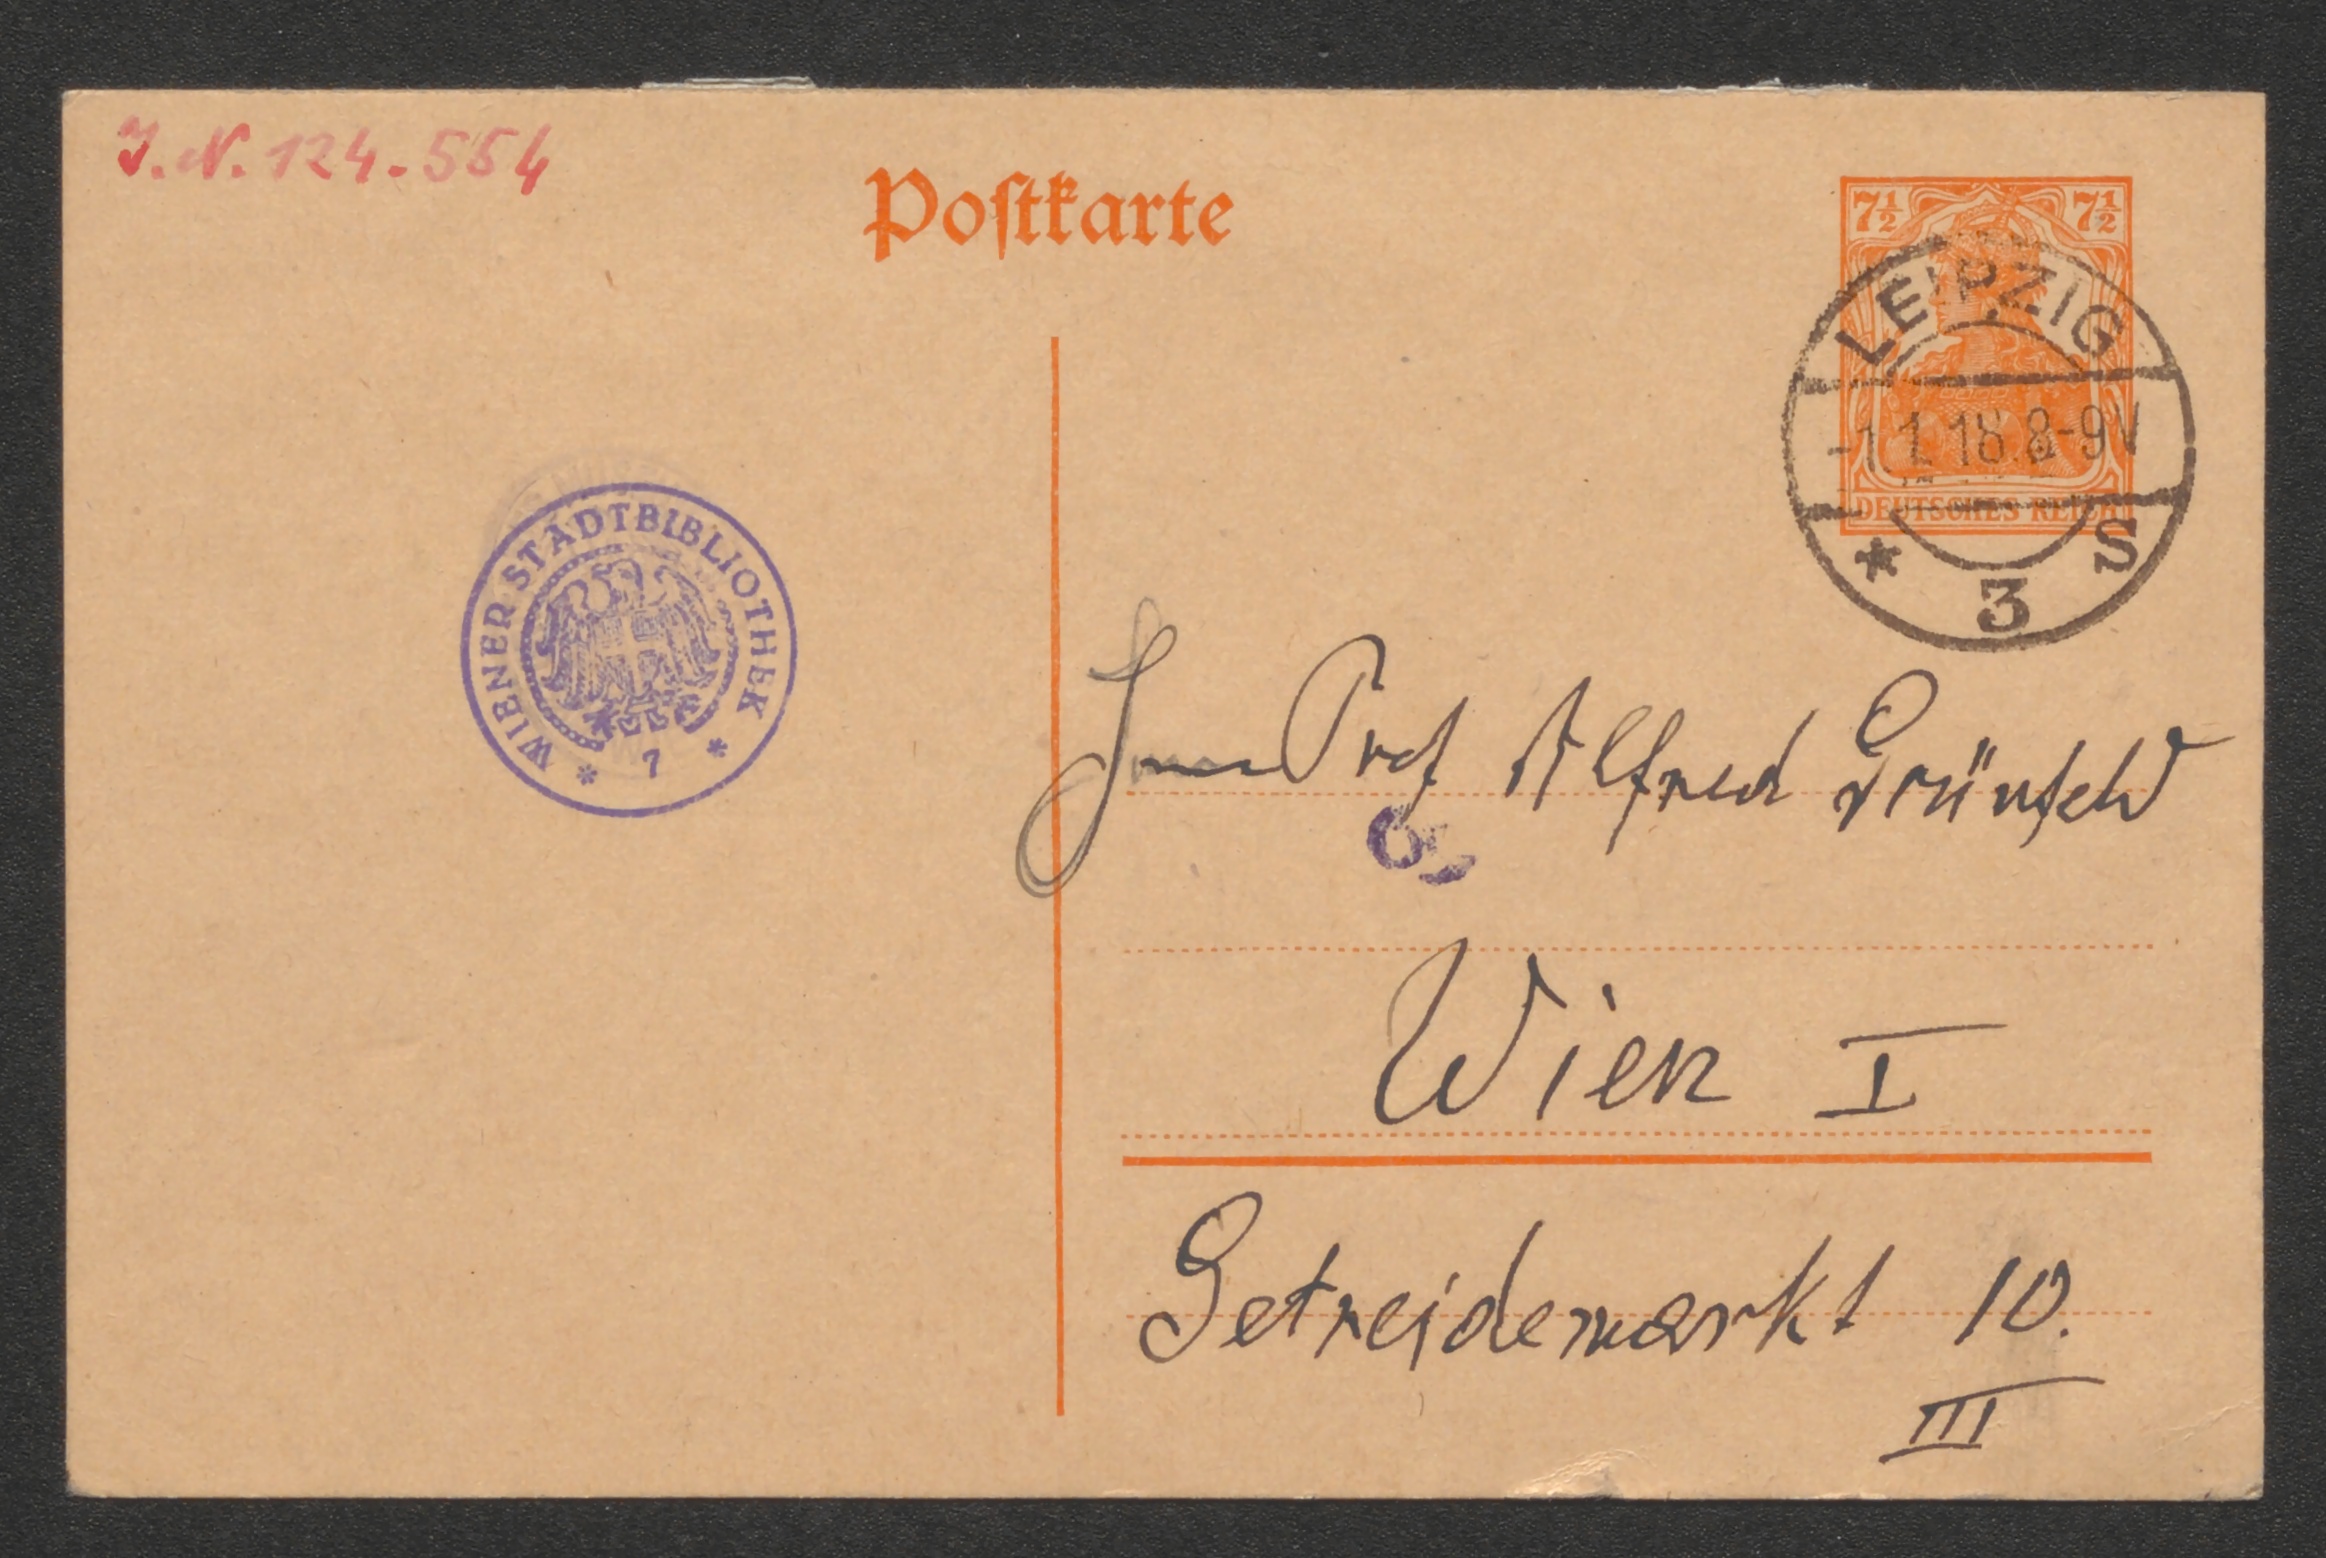 J. N. 124.554
Postkarte
7½ 7½
DEUTSCHES REICH
LEIPZIG
-1.1.18.8-9V
* 3 S
WIENER STADTBIBLIOTHEK
* 7 *
Prof Alfred Grünfeld
Wien I
Getreidemarkt 10.
III